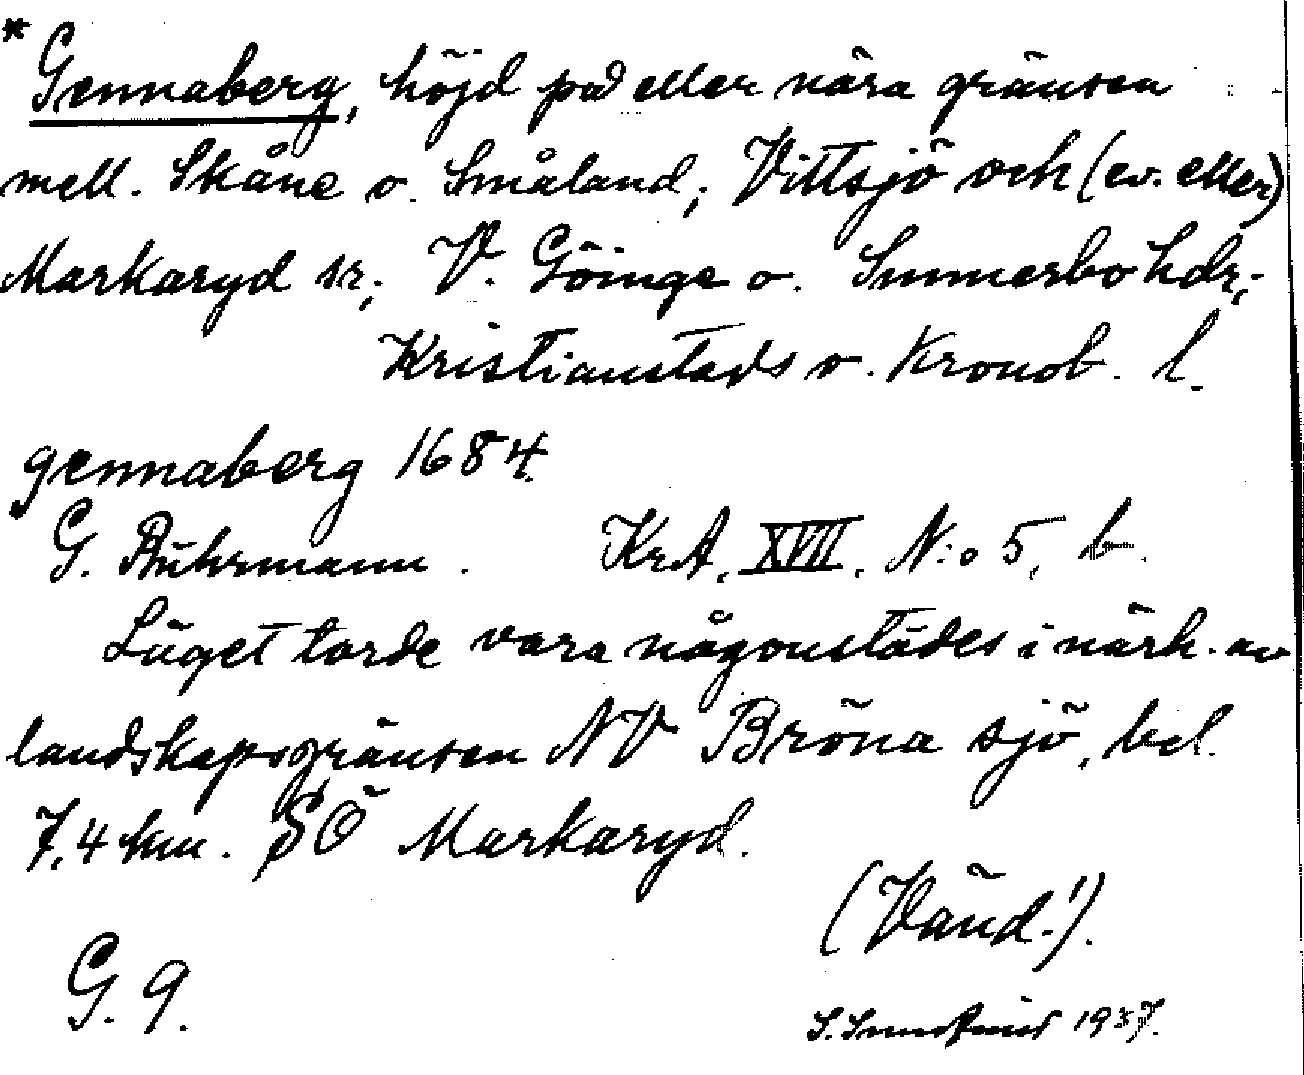 * Gennaberg, höjd på eller nära gränsen
mell. Skåne o. Småland; Vittsjö och (ev. eller)
Markaryd sr; V. Göinge o. Sunnerbo hdr;
Kristianstads o. Kronob. l.
gennaberg 1684.
G. Buhrmann. KrA, XVII, N:o 5, b.
Läget torde vara någonstädes i närh. av
landskapsgränsen NV Bröna sjö, bel.
7,4 km. SÖ Markaryd.
(Vänd!).
G. 9.
S. 1937.